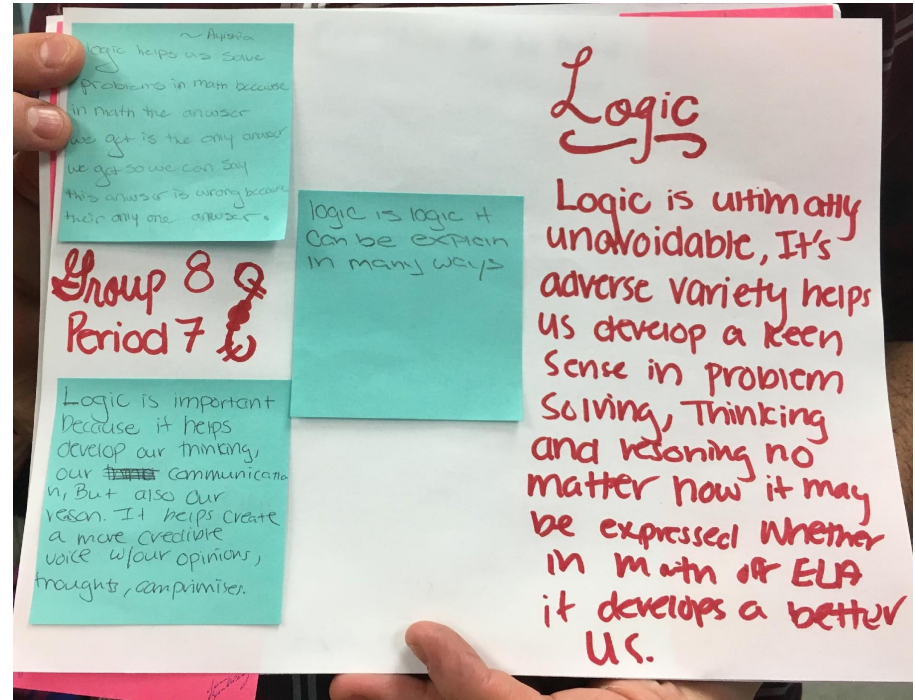 ~ Ayisha
Logic helps us solve
problems in math because
in math the anwser
we got is the only anwser
we got so we can say
this anwser is wrong because
their only one anwser.
Group 8
Period 7
Logic is important
because it helps
develop our thinking,
our communicatio
n, But also our
reson. It helps create
a more credible
voice w/our opinions,
thoughts, comprimises.
logic is logic it
can be explein
in many ways
Logic
Logic is ultimatly
unavoidable, It's
adverse variety helps
us develop a keen
sense in problem
solving, Thinking
and resoning no
matter how it may
be expressed whether
in math or ELA
it develops a better
us.